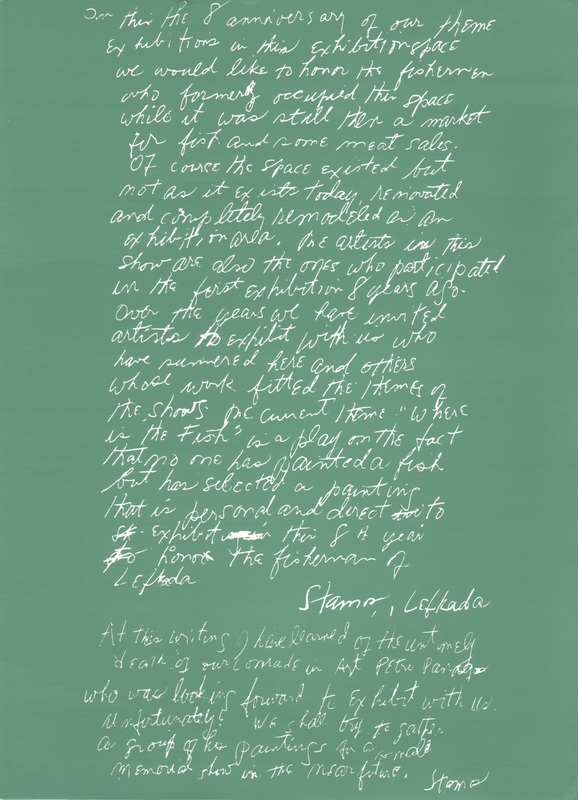 In this the 8 anniversary of our theme
Exhibitions in this Exhibition space
we would like to honor the fishermen
who formerly occupied this space
while it was still then a market
for fish and some meat sales.
Of course the space existed but
not as it exists today, renovated
and completely remodeled as an
exhibition area. The artists in this
show are also the ones who participated
in the first exhibition 8 years ago.
Over the years we have invited
artists to exhibit with us who
have summered here and others
whose work fitted the themes of
the shows. The current theme "Where
is the Fish" is a play on the fact
that no one has painted a fish
but has selected a painting
that is personal and direct to
exhibit this 8th year
to honor the fisherman of
Lefkada
Stamos, Lefkada
At this writing I have learned of the untimely
death of our comrade in Art Petro
who was looking forward to exhibit with us.
Unfortunately! We shall try to gather
a group of his paintings for a small
memorial show in the near future.
Stamos